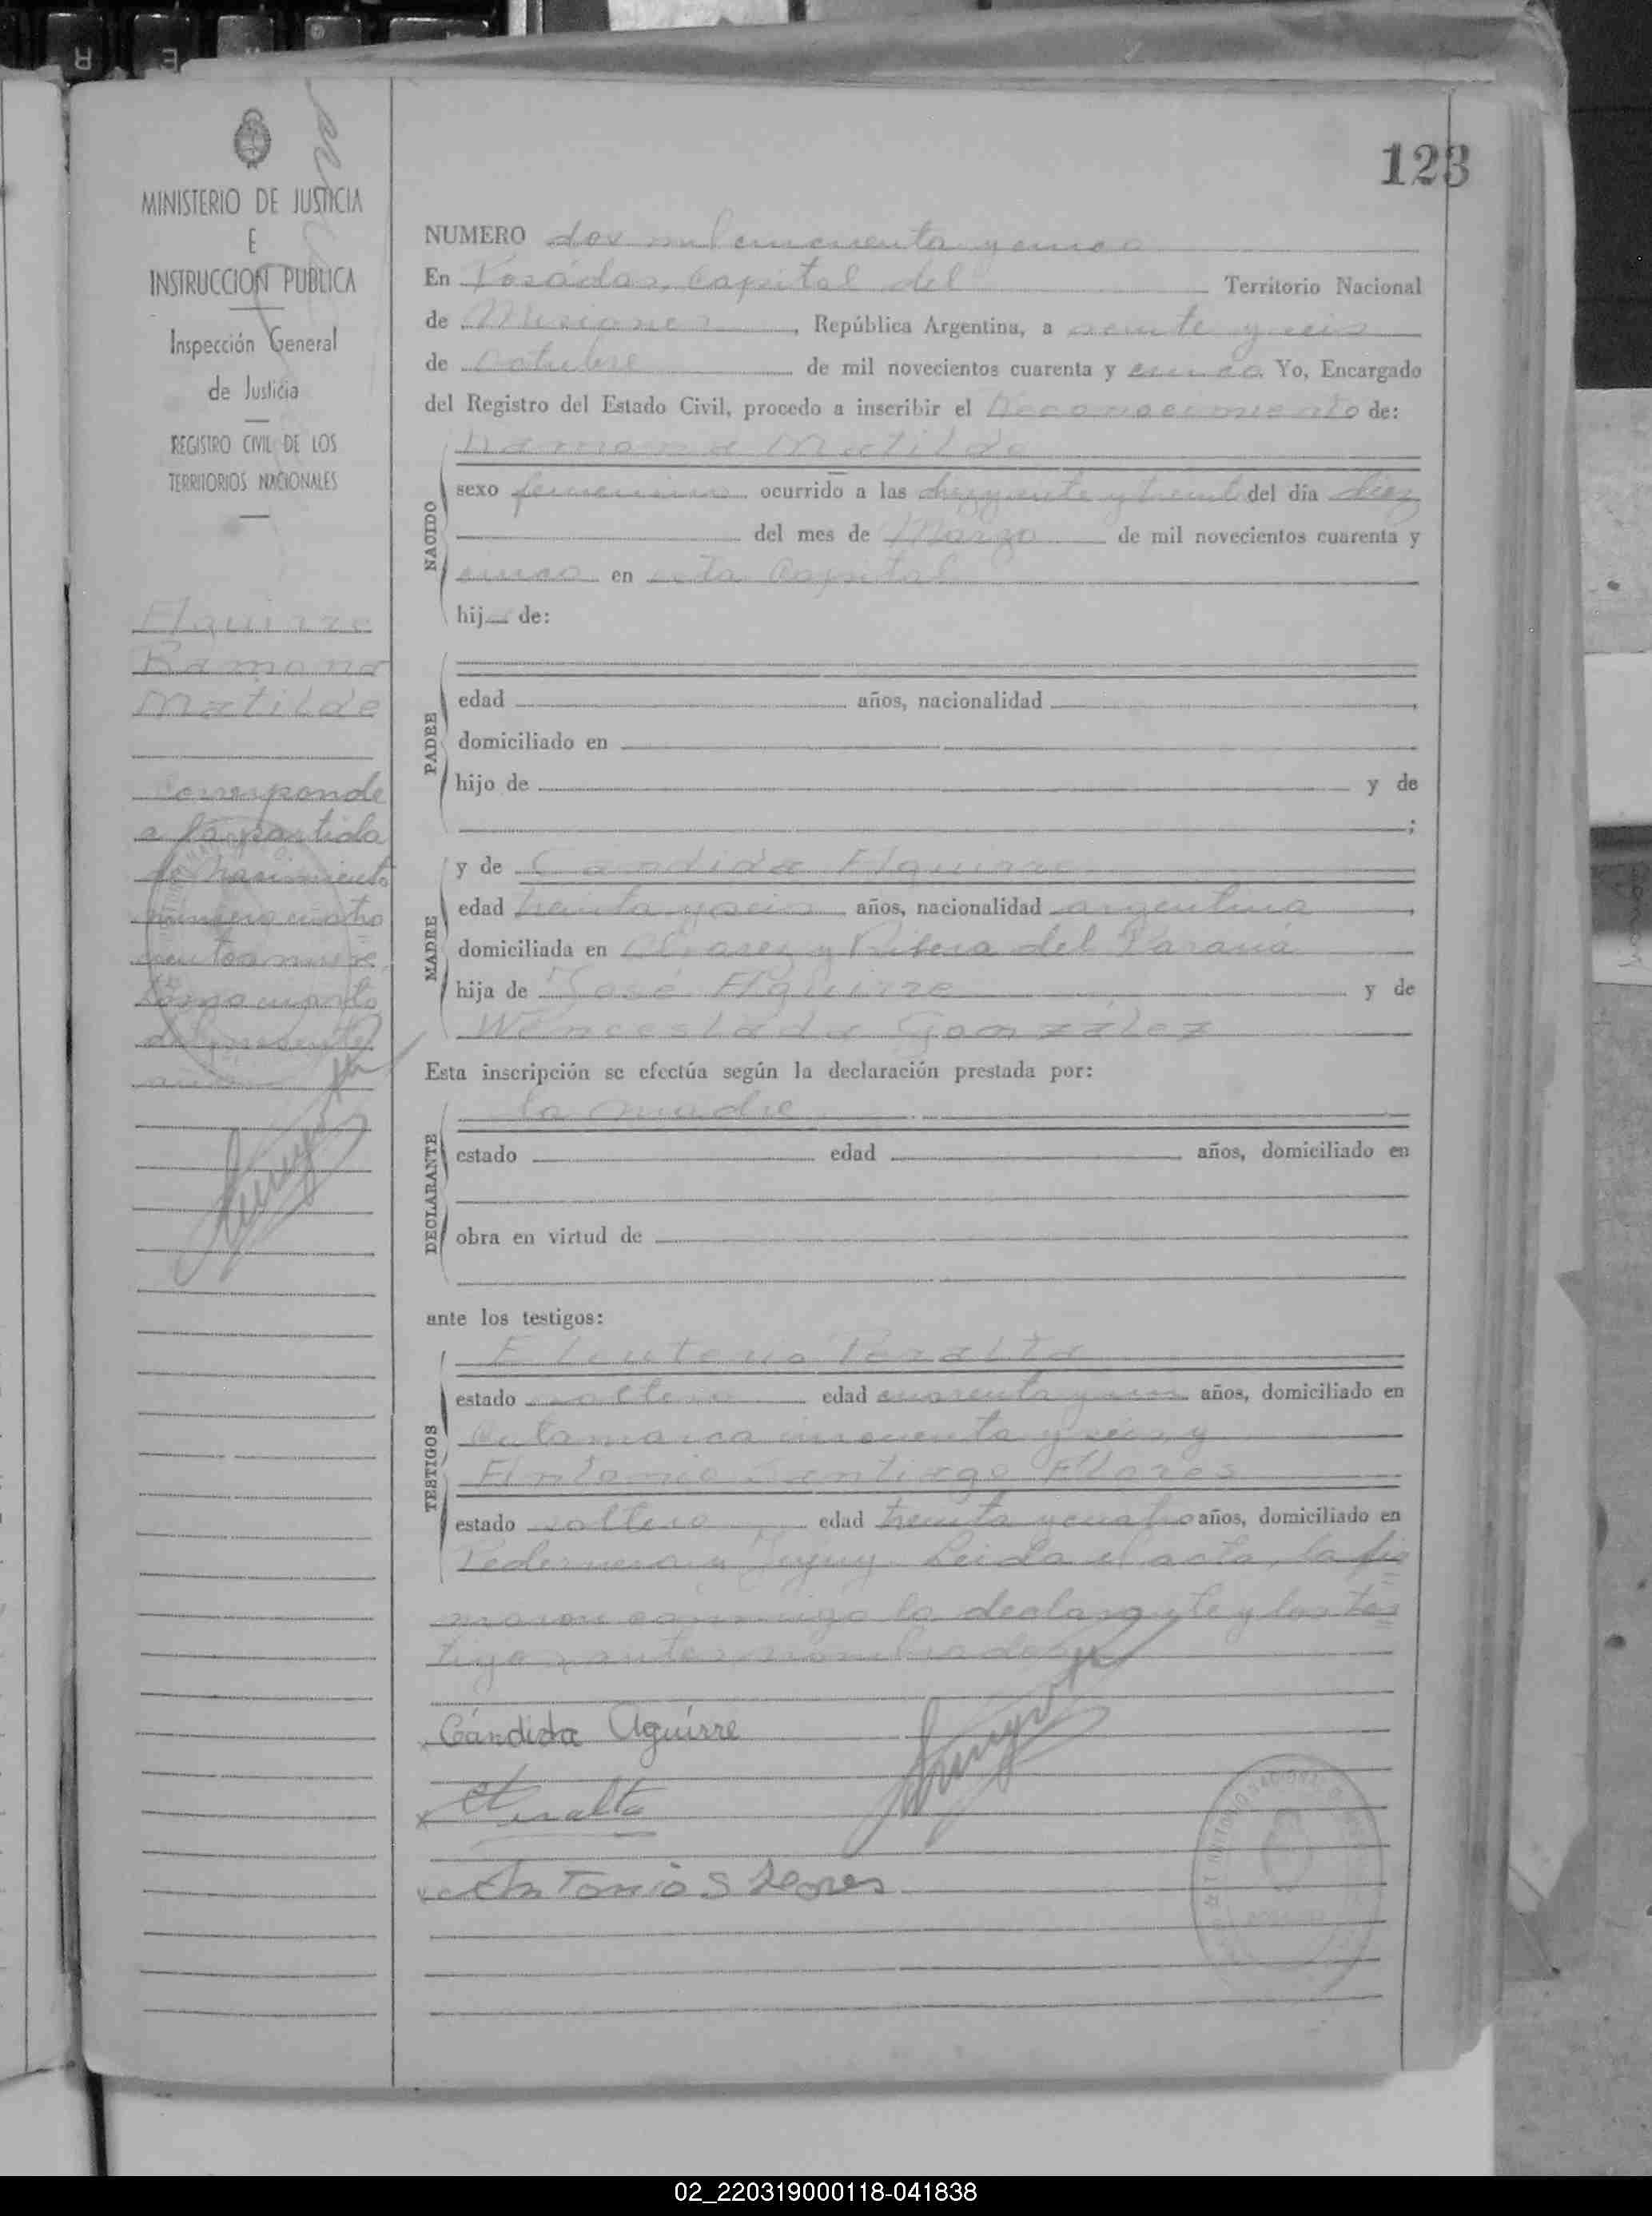 123
MINISTERIO DE JUSTICIA
E
INSTRUCCION PUBLICA
Inspección General
de Justicia
REGISTRO CIVIL DE LOS
TERRITORIOS NACIONALES
Aguirre
Ramona
Matilde
Corresponde
a la partida
de nacimiento
número cuatro
cientos nueve
tomo cuarto
del presente
año
NUMERO dos mil cincuenta y cinco
En Posadas, Capital del Territorio Nacional
de Misiones, República Argentina, a veinte y seis
de octubre de mil novecientos cuarenta y cinco Yo, Encargado
del Registro del Estado Civil, procedo a inscribir el Reconocimiento de:
Ramona Matilde
NACIDO
sexo femenino ocurrido a las del día diez
del mes de Marzo de mil novecientos cuarenta y
cinco en esta Capital
hij de:
PADRE
edad años, nacionalidad
domiciliado en
hijo de y de
;
MADRE
y de Candida Aguirre
edad treinta y seis años, nacionalidad argentina
domiciliada en y Ribera del Paraná
hija de José Aguirre y de
Wenceslada González
Esta inscripción se efectúa según la declaración prestada por:
DECLARANTE
la madre
estado edad años, domiciliado en
obra en virtud de
ante los testigos:
TESTIGOS
Eleuterio Peralta
estado soltero edad cuarenta y un años, domiciliado en
Catamarca cincuenta y seis y
Antonio Santiago Flores
estado soltero edad treinta y cuatro años, domiciliado en
Pedernera y Jujuy. Leida el acta, la fir
maron conmigo la declarante y los tes
tigos antes nombrados
Cándida Aguirre
EPeralta
Antonio S Flores
02_220319000118-041838